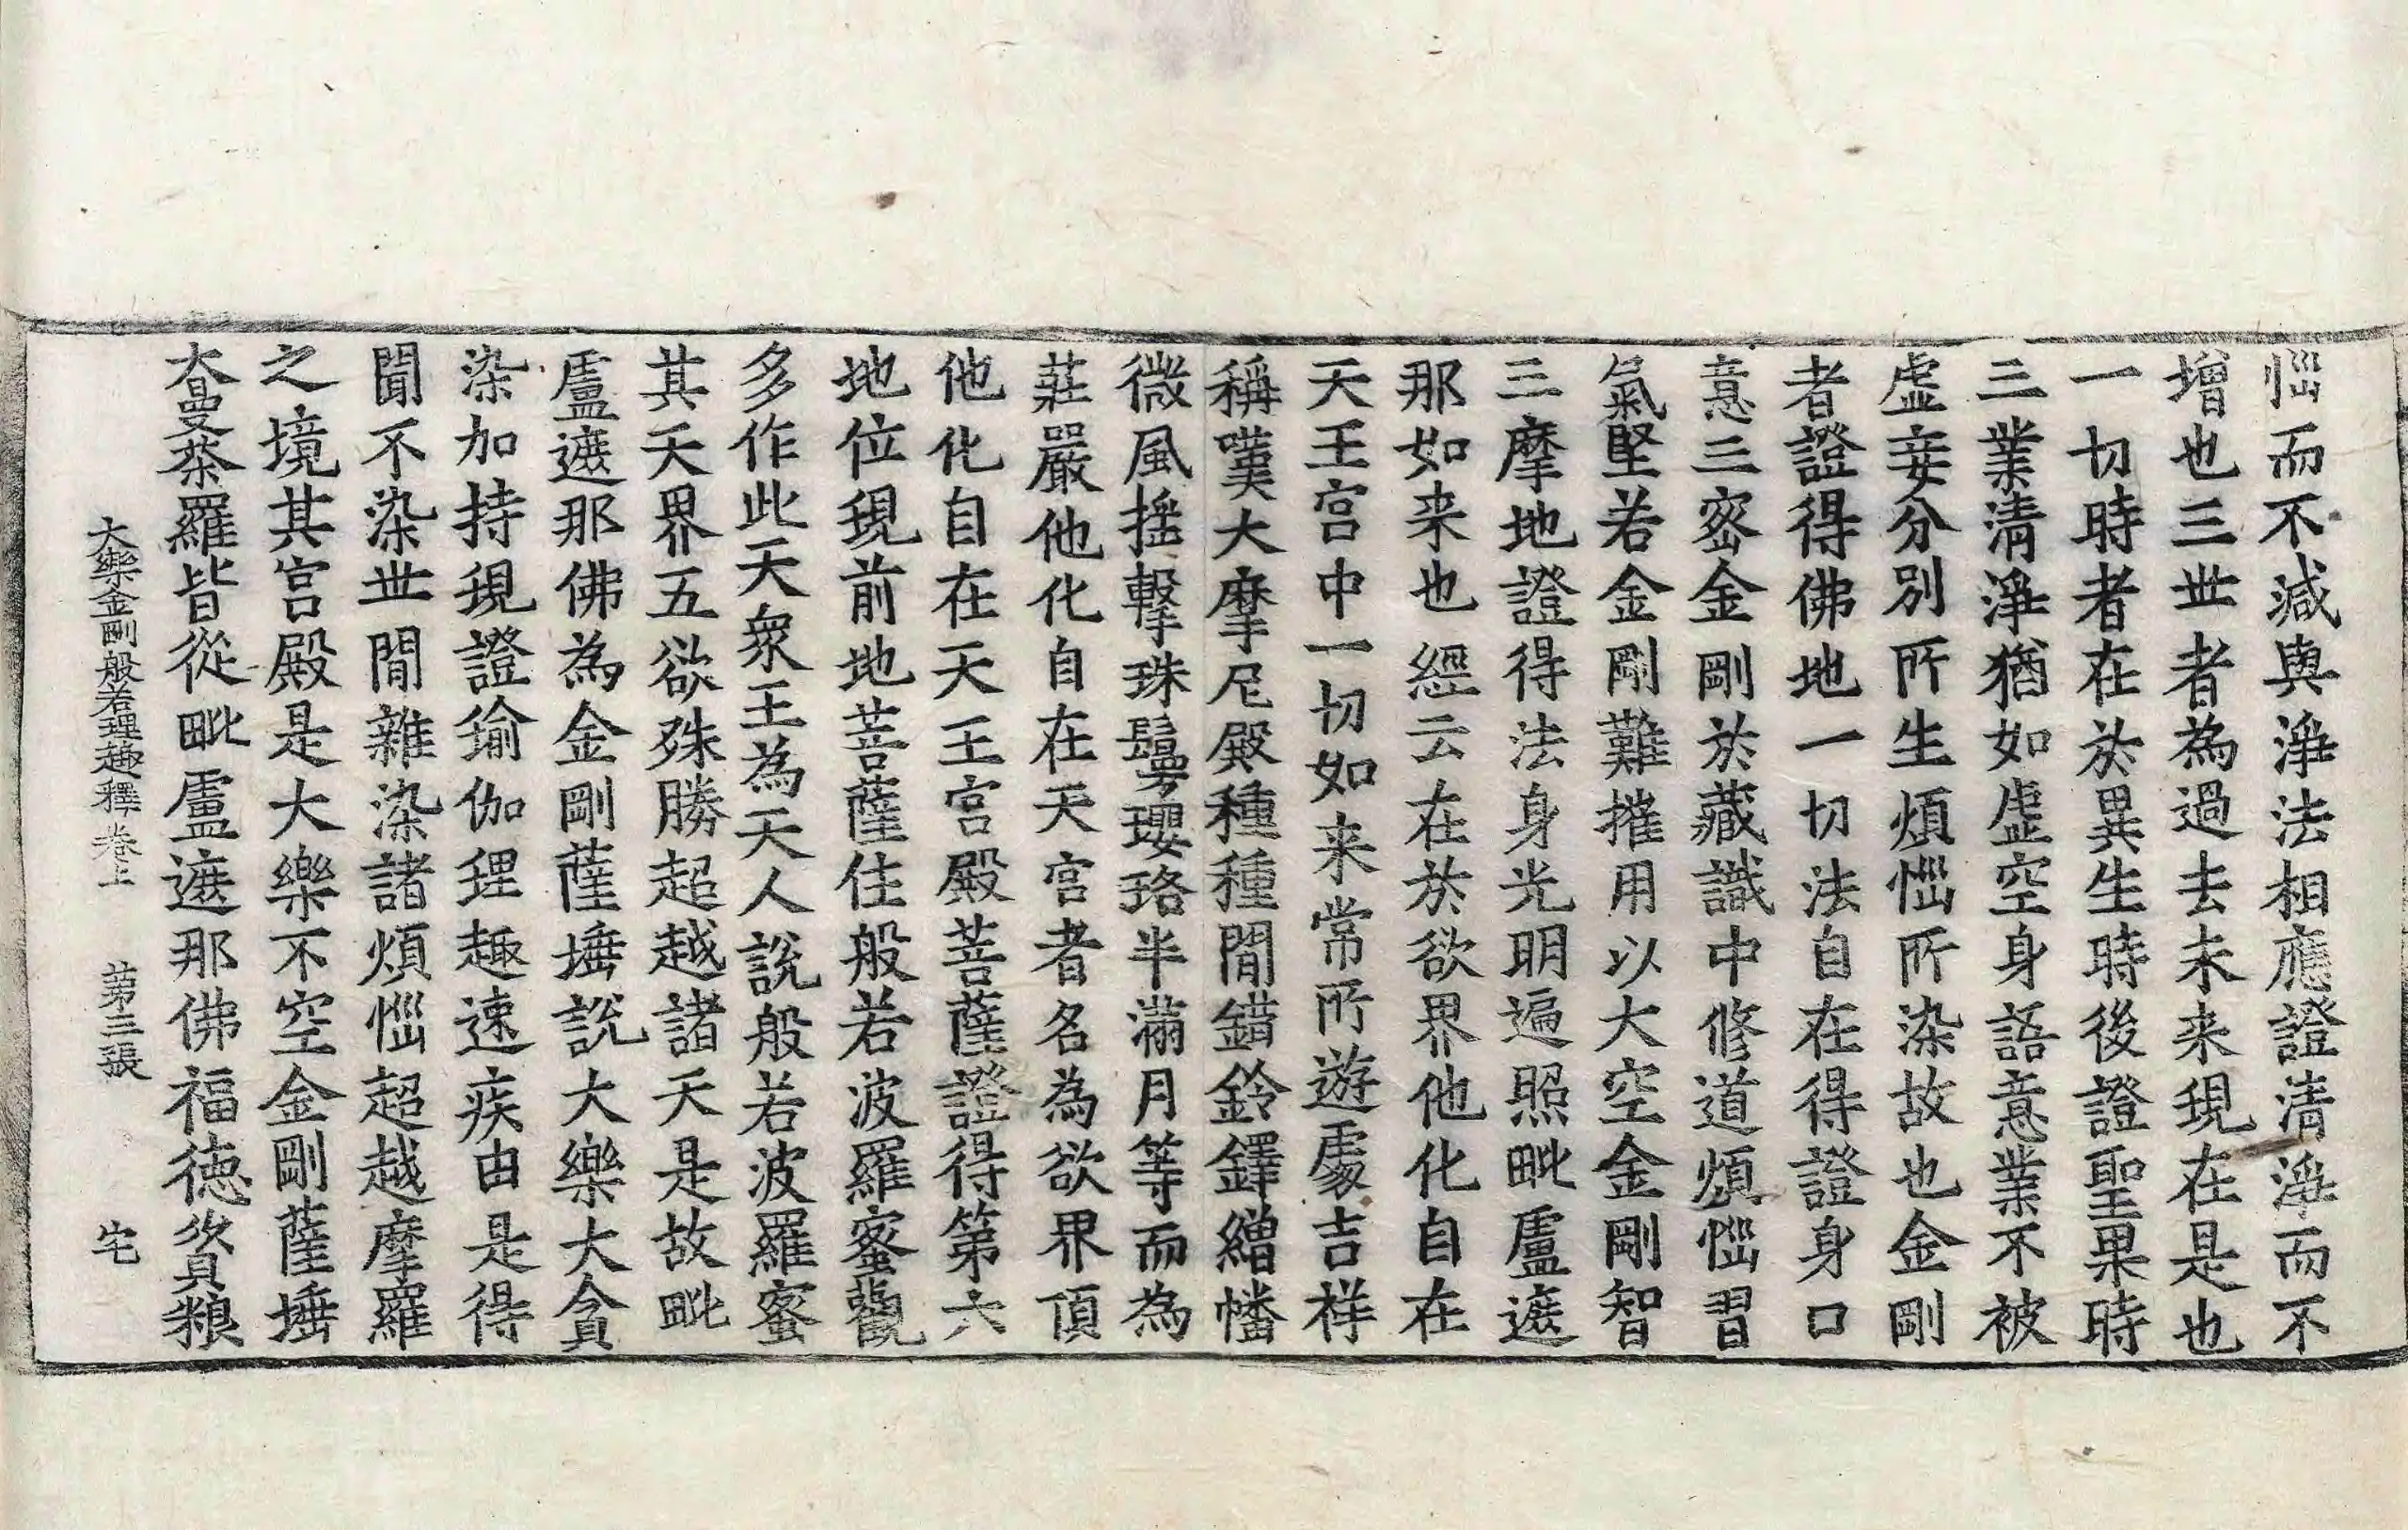 惱而不減與淨法相應證清淨而不
增也三世者為過去未来現在是也
一切時者在於異生時後證聖果時
三業清淨猶如虛空身語意業不被
虛妄分別所生煩惱所染故也金剛
者證得佛地一切法自在得證身口
意三密金剛於藏識中修道煩惱習
氣堅若金剛難摧用以大空金剛智
三摩地證得法身光明遍照毗盧遮
那如来也經云在於欲界他化自在
天王宮中一切如来常所遊處吉祥
稱嘆大摩尼殿種種間錯鈴鐸繒幡
微風搖擊珠鬘瓔珞半滿月等而為
莊嚴他化自在天宮者名為欲界頂
他化自在天王宮殿菩薩證得第六
地位現前地菩薩住般若波羅蜜觀
多作此天衆王為天人說般若波羅蜜
其天界五欲殊勝超越諸天是故毗
盧遮那佛為金剛薩埵說大樂大貪
染加持現證瑜伽理趣速疾由是得
聞不染世間雜染諸煩惱超越摩羅
之境其宮殿是大樂不空金剛薩埵
大曼荼羅皆從毗盧遮那佛福德資粮
大樂金剛般若理趣釋卷上 第三張 宅